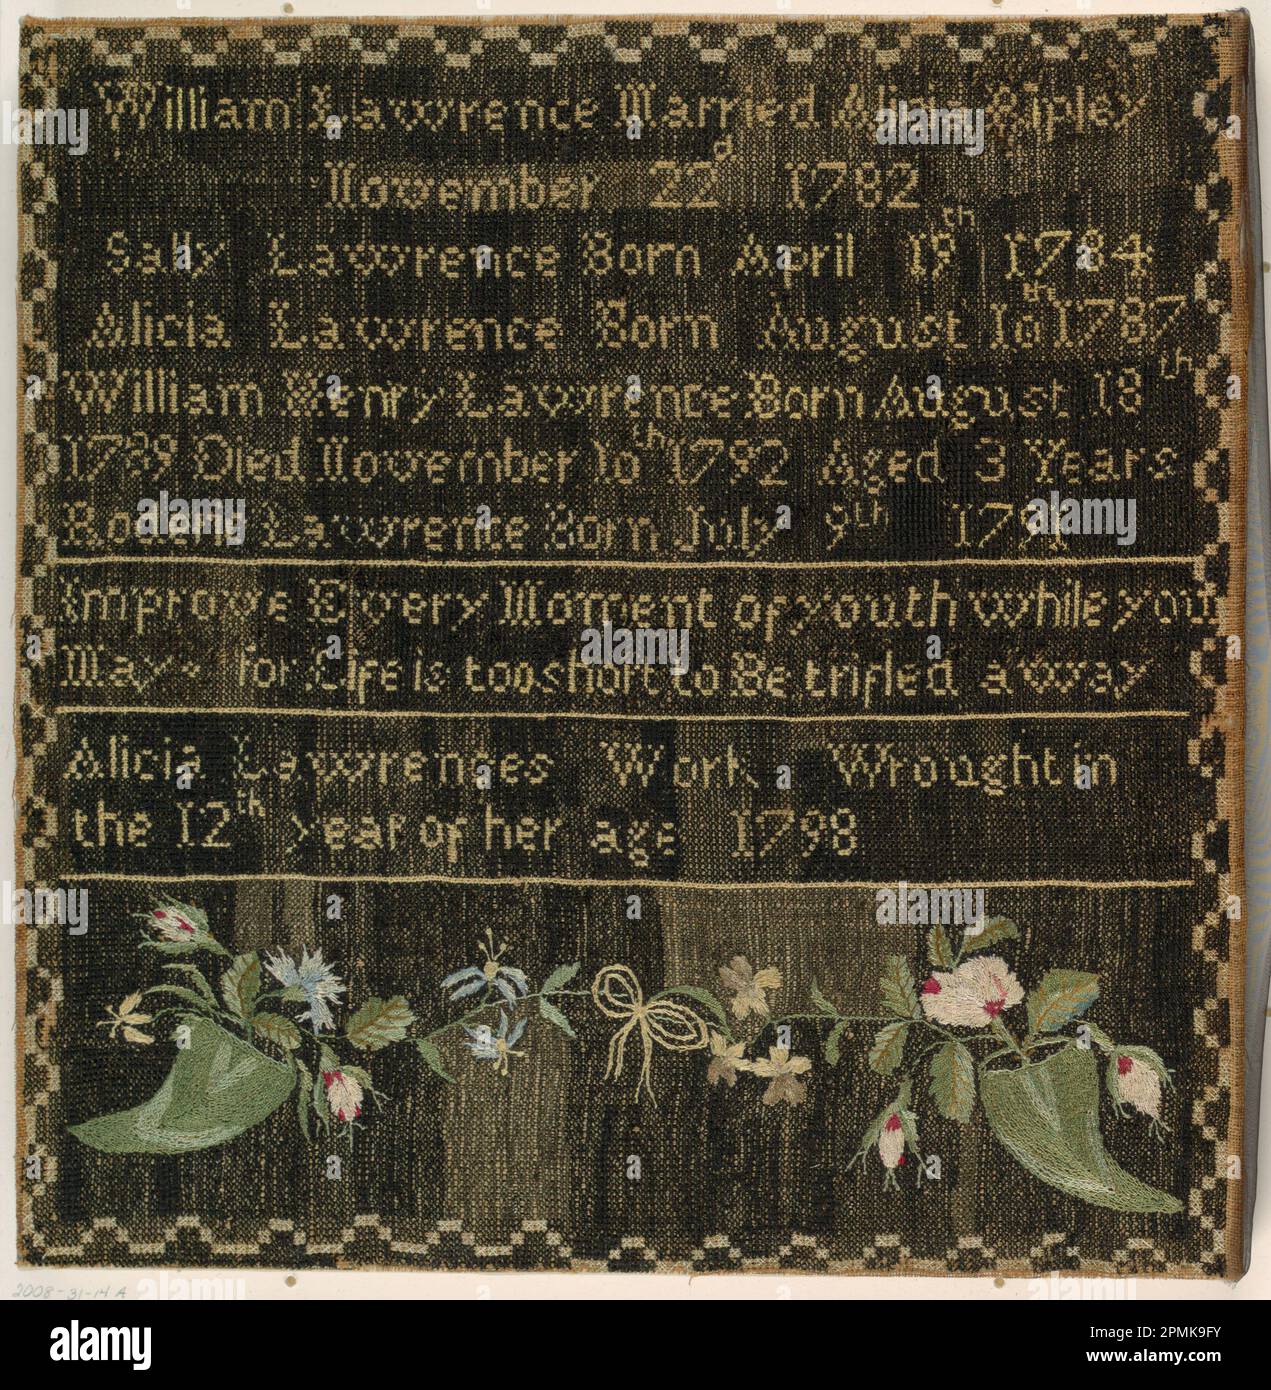 William Lawrence Married Alicia Ripley
November 22d 1782
Sally Lawrence Born April 19th 1784
Alicia Lawrence Born August 10th 1787
William Henry Lawrence Born August 18th
1789 Died November 10th 1792 Aged 3 Years
Lawrence Born July 9th 1791
Improve Every Moment of youth while you
May for Life is too short to Be trifled away
Alicia Lawrences Work Wrought in
the 12th year of her age 1798
2008-31-14 A
alamy
Image ID: 2PMK9FY
www.alamy.com